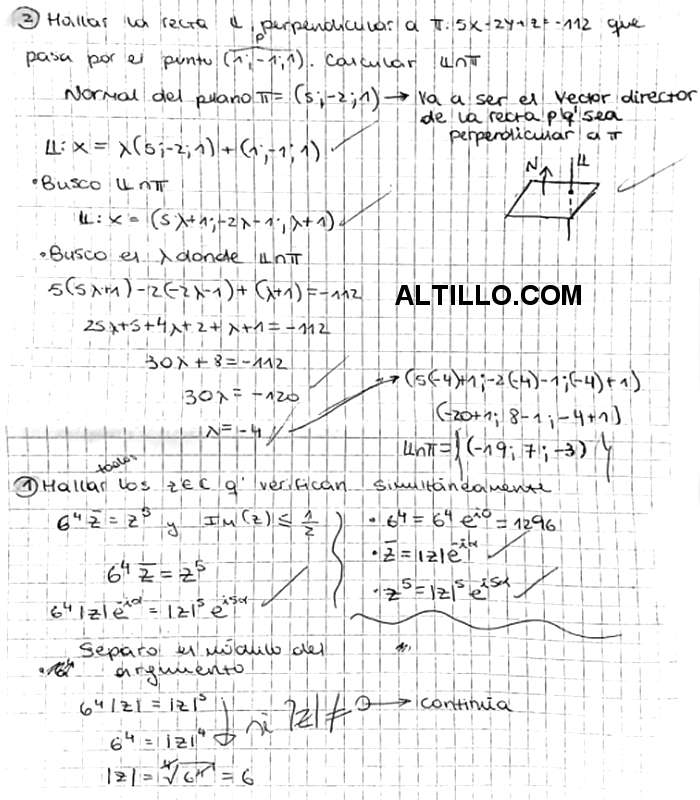 ② Hallar la recta L perpendicular a π: 5x-2y+z=-112 que
pasa por el punto p (1;-1;1). Calcular L∩π
Normal del plano π = (5;-2;1) → Va a ser el vector director
de la recta p/q' sea
perpendicular a π
L: x = λ(5;-2;1) + (1;-1;1)
• Busco L∩π
N L
L: x = (5λ+1;-2λ-1;λ+1)
• Busco el λ donde L∩π
5(5λ+1)-2(-2λ-1)+(λ+1)=-112
ALTILLO.COM
25λ+5+4λ+2+λ+1=-112
30λ+8=-112
30λ=-120
λ=-4
→ (5(-4)+1;-2(-4)-1;(-4)+1)
(-20+1; 8-1; -4+1)
L∩π={(-19; 7; -3)}
① Hallar todos los z∈C q' verifican simultáneamente
6⁴z̄=z⁵ y Im(z)≤1/2
• 6⁴=6⁴e^{i0}=1296
• z̄=|z|e^{-iα}
6⁴z̄=z⁵
• z⁵=|z|⁵e^{i5α}
6⁴|z|e^{-iα}=|z|⁵e^{i5α}
Separo el módulo del
argumento
6⁴|z|=|z|⁵
si |z|≠0 → continúa
6⁴=|z|⁴
|z|=⁴√6⁴=6